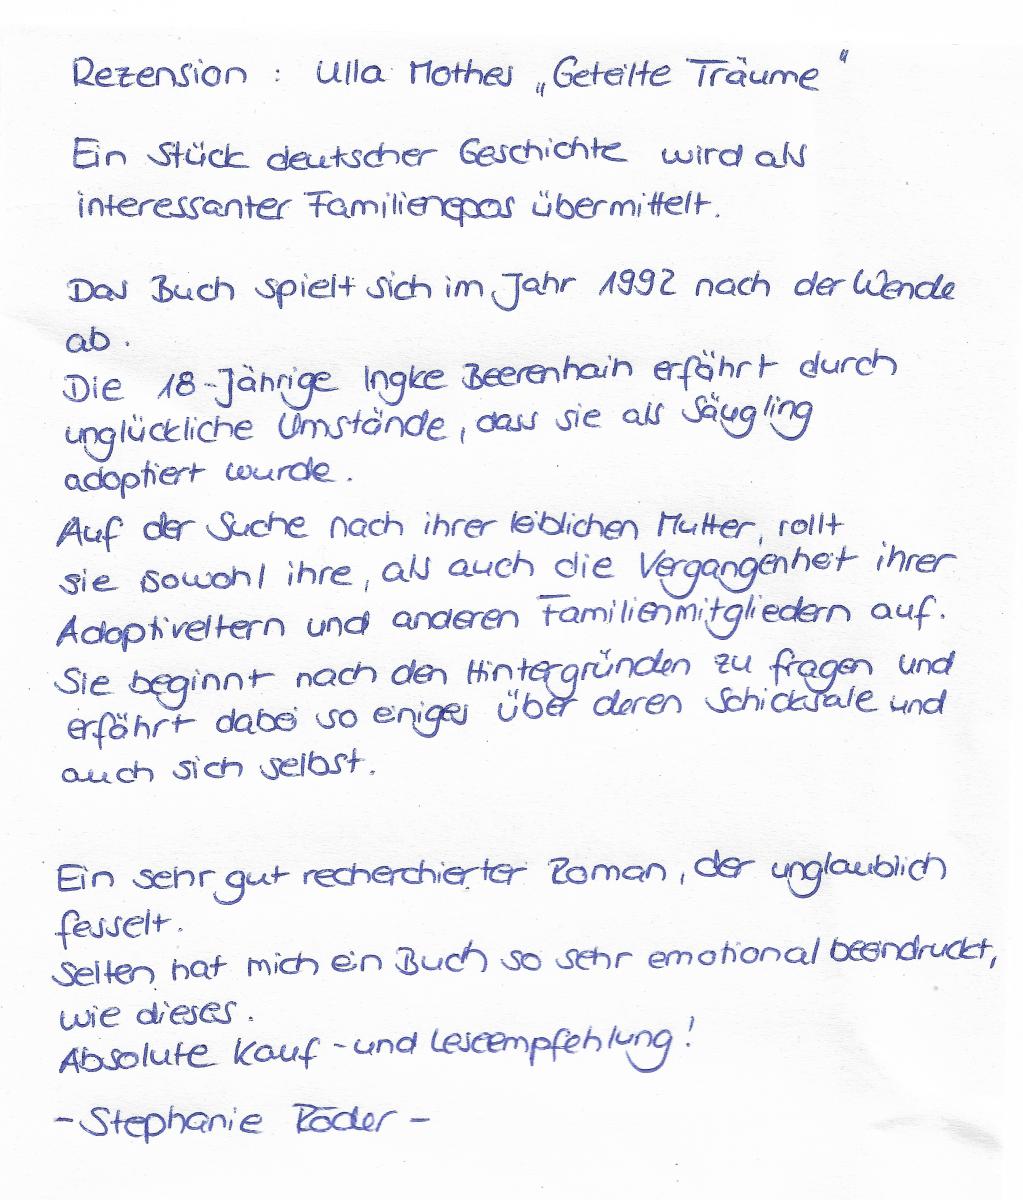 Rezension : Ulla Mothes „Geteilte Träume"
Ein Stück deutscher Geschichte wird als
interessanter Familienepos übermittelt.
Das Buch spielt sich im Jahr 1992 nach der Wende
ab.
Die 18-Jährige Ingke Beerenhain erfährt durch
unglückliche Umstände, dass sie als Säugling
adoptiert wurde.
Auf der Suche nach ihrer leiblichen Mutter, rollt
sie sowohl ihre, als auch die Vergangenheit ihrer
Adoptiveltern und anderen Familienmitgliedern auf.
Sie beginnt nach den Hintergründen zu fragen und
erfährt dabei so einiges über deren Schicksale und
auch sich selbst.
Ein sehr gut recherchierter Roman, der unglaublich
fesselt.
Selten hat mich ein Buch so sehr emotional beeindruckt,
wie dieses.
Absolute Kauf-und Leseempfehlung!
-Stephanie Röder-